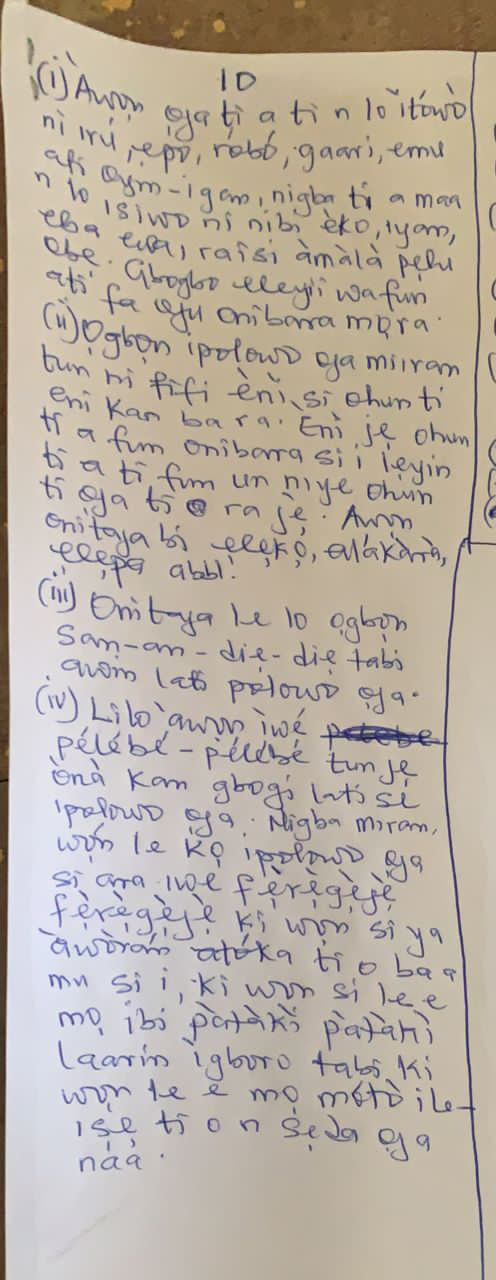 10
(i) Àwọn ọja tí a ti n lo ìtọ́wò
ni irú, ẹpo, róbó, gaari, emu
ati ọsm-igam, nigba ti a maa
n lo isiwo ni nibi èkọ, iyam,
ẹba ẹwa, raisi àmàlà pẹlu
ọbẹ. Gbogbo eleyii wa fun
ati fa oju onibara mọra.
(ii) Ọgbọ́n ipolowo ọja miiram
tun ni fifi èni si ohun ti
eni kan ba ra. Èni jẹ ohun
ti a fum onibara si i lẹyin
ti a ti fum un niye ohun
ti ọja ti o ra jẹ. Awọn
onitaja bi ẹlẹkọ, alákàrà,
ẹlẹpa abbl.
(iii) Onitaja le lo ọgbọn
san-an-diẹ-diẹ tabi
awin lati polowo ọja.
(iv) Lilo àwọn ìwé
pélébé-pélébé tun jẹ
ọ̀nà kan gbogi lati se
ipolowo ọja. Nigba miram,
wọ́n le kọ ipolowo ọja
si ara iwe fẹ̀rẹ̀gẹ̀jẹ̀
fẹ̀rẹ̀gẹ̀jẹ̀ ki wọn si ya
àwòrán atọ́ka ti o baa
mu si i, ki wọn si le e
mọ ibi pàtàkì pàtàkì
laarin ìgboro tabi ki
wọn le e mọ mọ́tò ile-
isẹ ti o n sẹda ọja
náà.